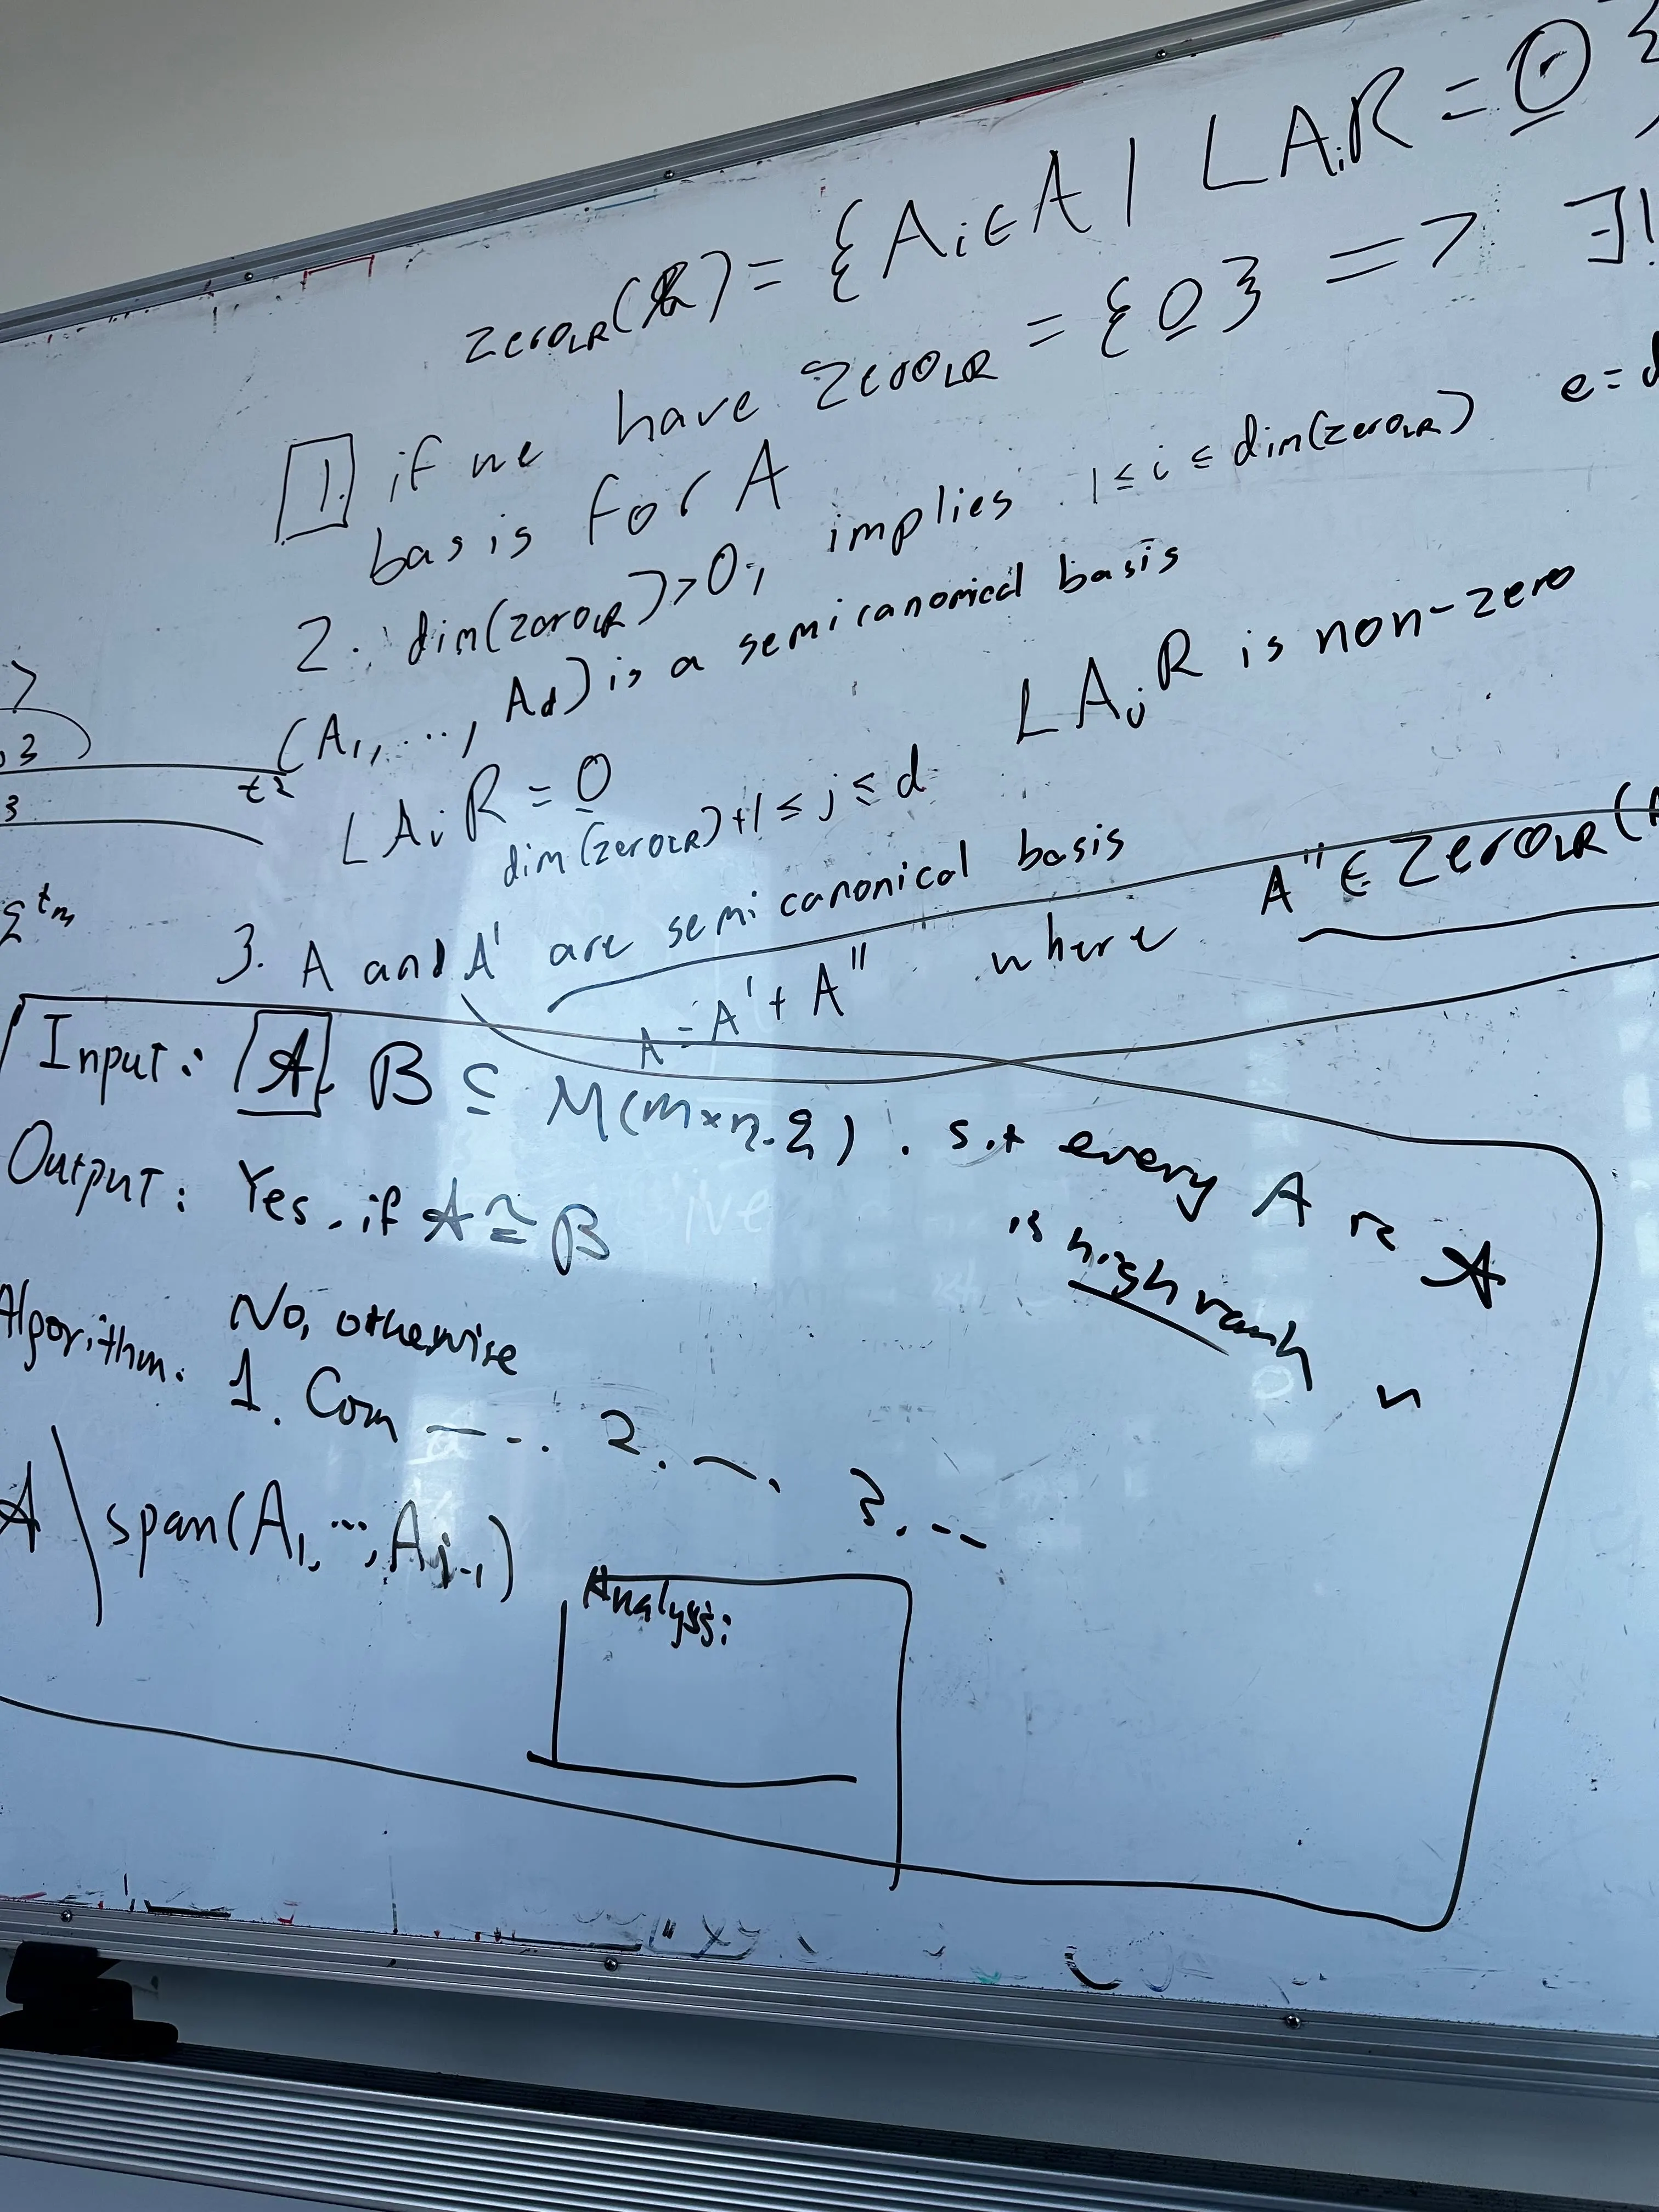 zero_LR(A) = {A_i ∈ A | L A_i R = 0}
1. if we have zero_LR = {0} => ∃!
basis for A
e=
2. dim(zero_LR)>0, implies 1 ≤ i ≤ dim(zero_LR)
(A_1, ..., A_d) is a semicanonical basis
L A_i R = 0
L A_j R is non-zero
dim(zero_LR)+1 ≤ j ≤ d
3. A and A' are semicanonical basis
A = A' + A'' where A'' ∈ Zero_LR(
Input: A, B ⊆ M(m×n, q). s.t every A in A
is high rank
Output: Yes, if A ≅ B
No, otherwise
Algorithm: 1. Com --.. 2. 3. --
A \ span(A_1, ..., A_{j-1})
Analysis:
3
t_2
3
q^{t_m}